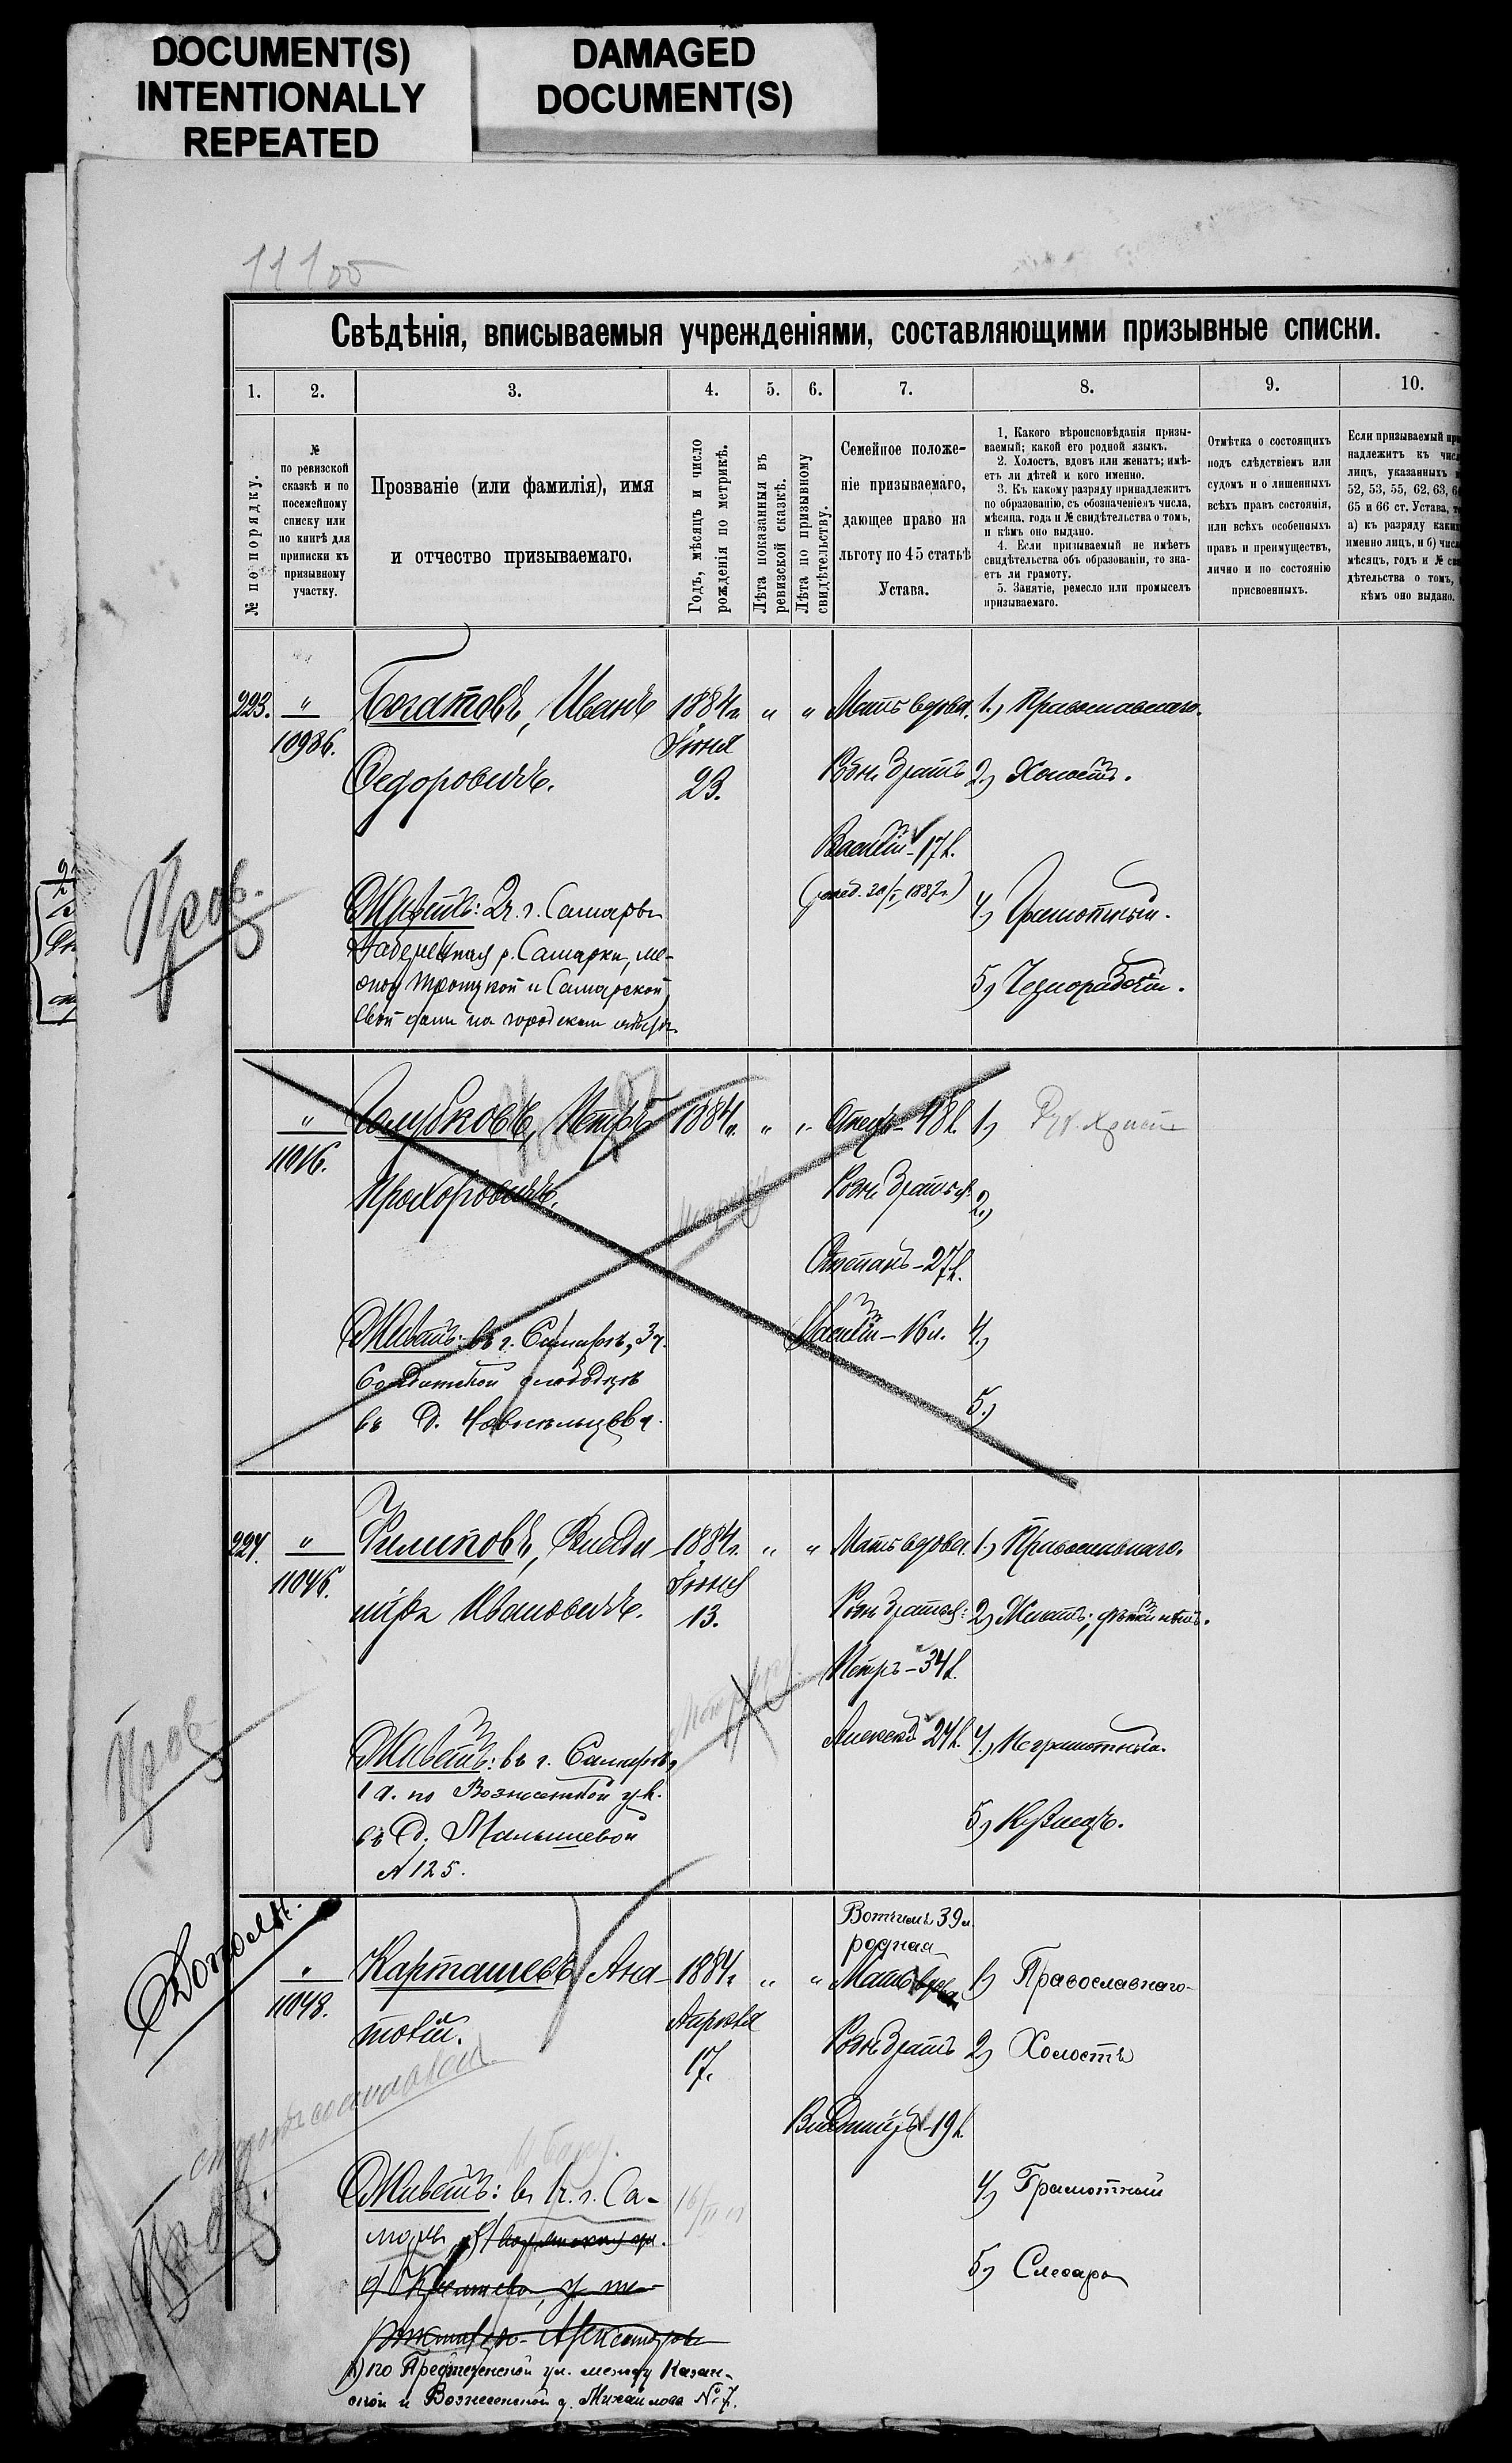 DOCUMENT(S)
INTENTIONALLY
REPEATED
DAMAGED
DOCUMENT(S)
Свѣдѣнія, вписываемыя учрежденіями, составляющими призывные списки.
1. 2. 3. 4. 5. 6. 7. 8. 9. 10.
№ по порядку.
№
по ревизской
сказкѣ и по
посемейному
списку или
по книгѣ для
приписки къ
призывному
участку.
Прозваніе (или фамилія), имя
и отчество призываемаго.
Годъ, мѣсяцъ и число
рожденія по метрикѣ.
Лѣта показанныя въ
ревизской сказкѣ.
Лѣта по призывному
свидѣтельству.
Семейное положе-
ніе призываемаго,
дающее право на
льготу по 45 статьѣ
Устава.
1. Какого вѣроисповѣданія призы-
ваемый; какой его родной языкъ.
2. Холостъ, вдовъ или женатъ; имѣ-
етъ ли дѣтей и кого именно.
3. Къ какому разряду принадлежитъ
по образованію, съ обозначеніемъ числа,
мѣсяца, года и № свидѣтельства о томъ,
и кѣмъ оно выдано.
4. Если призываемый не имѣетъ
свидѣтельства объ образованіи, то зна-
етъ ли грамоту.
5. Занятіе, ремесло или промыселъ
призываемаго.
Отмѣтка о состоящихъ
подъ слѣдствіемъ или
судомъ и о лишенныхъ
всѣхъ правъ состоянія,
или всѣхъ особенныхъ
правъ и преимуществъ,
лично и по состоянію
присвоенныхъ.
Если призываемый
надлежитъ къ
лицъ, указанныхъ
52, 53, 55, 62, 63,
65 и 66 ст. Устава,
а) къ разряду
именно лицъ, и б)
мѣсяцъ, годъ и №
дѣтельства о томъ,
кѣмъ оно выдано.
223. " Богатовъ, Иванъ 1884 г. " " Мать вдова. 1.) Православнаго.
10986. Федоровичъ. Іюня 23. Родн. братъ 2.) Холостъ.
Василій - 17 л.
Живетъ: 2 ч. г. Самары 4.) Грамотный.
Набережная р. Самарки, ме-
жду Троицкой и Самарской, 5.) Чернорабочій.
свой домъ на городскомъ
" Голубковъ, Петръ 1884 г. " " Отецъ - 48 л. 1.)
11016. Прохоровичъ. Родн. братья: 2.)
Степанъ - 27 л.
Живетъ: въ г. Самарѣ, 3 ч. Василій - 16 л. 4.)
Солдатской слободкѣ 5.)
въ д. Новосельцева.
224. " Филиповъ, Влади- 1884 г. " " Мать вдова. 1.) Православнаго.
11046. міръ Ивановичъ. Іюня 13. Родн. братья: 2.) Женатъ; дѣтей нѣтъ.
Петръ - 34 л.
Алексей 24 л. 4.) Неграмотный.
Живетъ: въ г. Самарѣ,
1 ч. по Вознесенской ул. 5.) Кузнецъ.
въ д. Малышевой
№ 125.
Вотчимъ 39 л.
родная
" Карташевъ, Ана- 1884 г. " " Мать вдова 1.) Православнаго
11048. толій. Апрѣля 17. Родн. братъ 2.) Холостъ
Владиміръ - 19 л.
Живетъ: въ 1 ч. г. Са- 4.) Грамотный
марѣ, 5.) Слесарь
по Предтеченской ул. между Казан-
ской и Вознесенской д. Михайлова № 7.